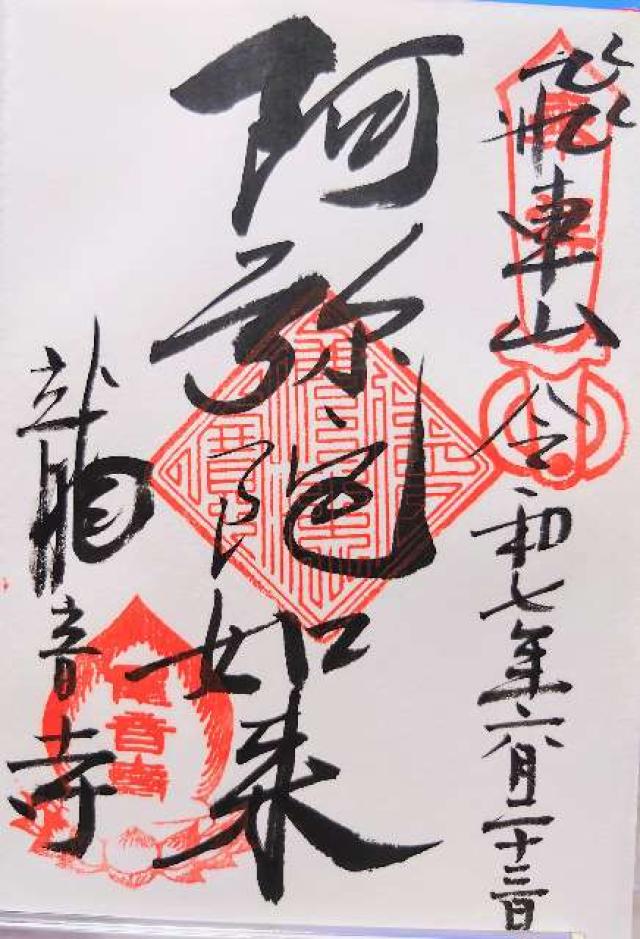 飛車山 令和七年六月二十三日
阿弥陀如来
龍音寺
龍音寺